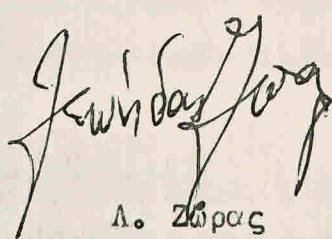 Λεωνίδας Ζώρας
Λ. Ζώρας